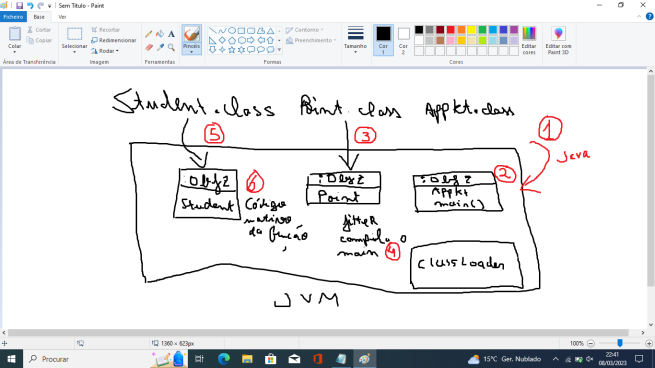 Sem Título - Paint
Ficheiro Base Ver
Colar
Cortar
Copiar
Área de Transferência
Selecionar
Recortar
Redimensionar
Rodar
Imagem
Ferramentas
Pincéis
Contorno
Preenchimento
Formas
Tamanho
Cor 1
Cor 2
Editar cores
Editar com Paint 3D
Cores
Student.class Point.class AppKt.class
5 3 1
java
:Obj2 6 :Obj2 :Obj2 2
Student Point AppKt
main()
Código
nativo
da função
jitter
compila o
main 4
ClassLoader
JVM
1360 × 623px
100%
Procurar
15°C Ger. Nublado
22:41
08/03/2023